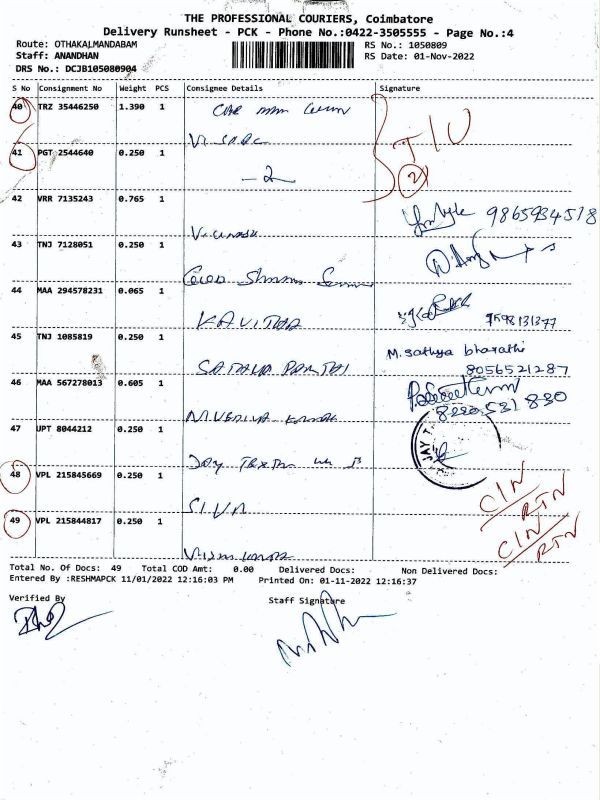 THE PROFESSIONAL COURIERS, Coimbatore
Delivery Runsheet - PCK - Phone No.:0422-3505555 - Page No.:4
Route: OTHAKALMANDABAM
RS No.: 1050809
Staff: ANANDHAN
RS Date: 01-Nov-2022
DRS No.: DCJB105080904
S No Consignment No Weight PCS Consignee Details Signature
40 TRZ 35446250 1.390 1
T/U
41 PGT 2544640 0.250 1
-2
2
42 VRR 7135243 0.765 1
9865934518
43 TNJ 7128051 0.250 1
44 MAA 294578231 0.065 1
KAVITHA
45 TNJ 1085819 0.250 1
M. Sathya bharathi
8056521287
46 MAA 567278013 0.605 1
47 UPT 8044212 0.250 1
JAY T
48 VPL 215845669 0.250 1
SIVA
CIN
RTN
49 VPL 215844817 0.250 1
CIN
RTN
Total No. Of Docs: 49 Total COD Amt: 0.00 Delivered Docs: Non Delivered Docs:
Entered By :RESHMAPCK 11/01/2022 12:16:03 PM Printed On: 01-11-2022 12:16:37
Verified By
Staff Signature